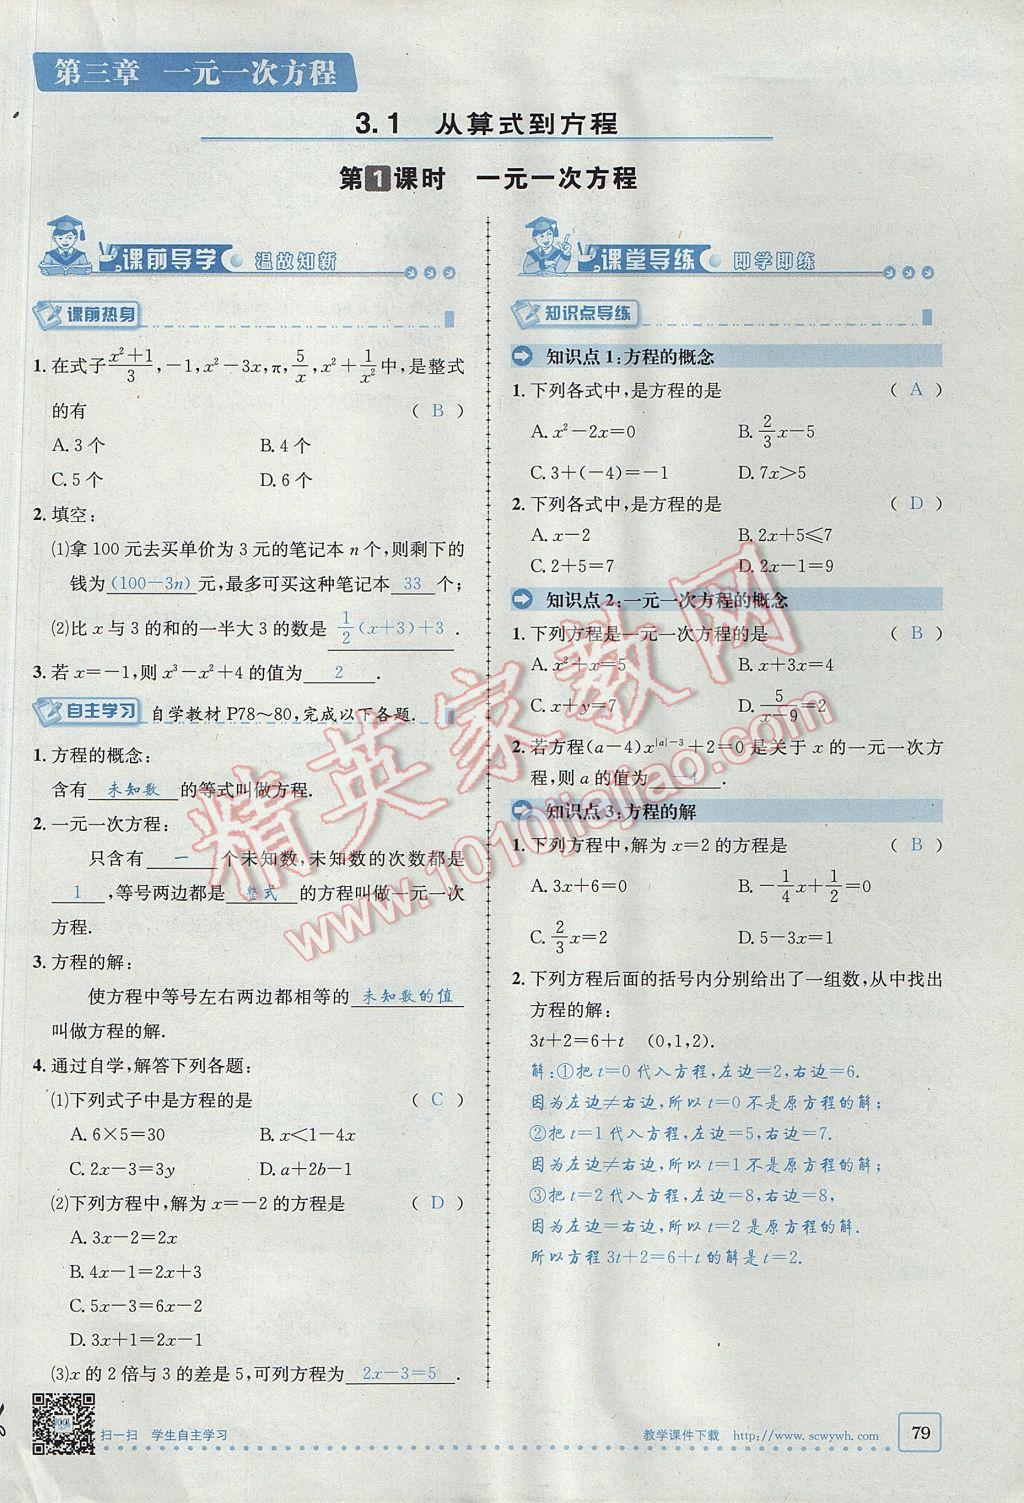 第三章 一元一次方程
3.1 从算式到方程
第1课时 一元一次方程
课前导学 温故知新
课前热身
1. 在式子(x²+1)/3,-1,x²-3x,π,5/x,x²+1/x²中,是整式
的有 ( B )
A. 3个 B. 4个
C. 5个 D. 6个
2. 填空:
(1)拿100元去买单价为3元的笔记本n个,则剩下的
钱为(100-3n)元,最多可买这种笔记本 33 个;
(2)比x与3的和的一半大3的数是 1/2(x+3)+3 .
3. 若x=-1,则x³-x²+4的值为 2 .
自主学习 自学教材P78~80,完成以下各题.
1. 方程的概念:
含有 未知数 的等式叫做方程.
2. 一元一次方程:
只含有 一 个未知数,未知数的次数都是
1 ,等号两边都是 整式 的方程叫做一元一次
方程.
3. 方程的解:
使方程中等号左右两边都相等的 未知数的值
叫做方程的解.
4. 通过自学,解答下列各题:
(1)下列式子中是方程的是 ( C )
A. 6×5=30 B. x<1-4x
C. 2x-3=3y D. a+2b-1
(2)下列方程中,解为x=-2的方程是 ( D )
A. 3x-2=2x
B. 4x-1=2x+3
C. 5x-3=6x-2
D. 3x+1=2x-1
(3)x的2倍与3的差是5,可列方程为 2x-3=5 .
扫一扫 学生自主学习
课堂导练 即学即练
知识点导练
知识点1:方程的概念
1. 下列各式中,是方程的是 ( A )
A. x²-2x=0 B. 2/3x-5
C. 3+(-4)=-1 D. 7x>5
2. 下列各式中,是方程的是 ( D )
A. x-2 B. 2x+5≤7
C. 2+5=7 D. 2x-1=9
知识点2:一元一次方程的概念
1. 下列方程是一元一次方程的是 ( B )
A. x²+x=5 B. x+3x=4
C. x+y=7 D. 5/(x-9)=2
2. 若方程(a-4)x^{|a|-3}+2=0是关于x的一元一次方
程,则a的值为 -4 .
知识点3:方程的解
1. 下列方程中,解为x=2的方程是 ( B )
A. 3x+6=0 B. -1/4x+1/2=0
C. 2/3x=2 D. 5-3x=1
2. 下列方程后面的括号内分别给出了一组数,从中找出
方程的解:
3t+2=6+t (0,1,2).
解:①把t=0代入方程,左边=2,右边=6.
因为左边≠右边,所以t=0不是原方程的解;
②把t=1代入方程,左边=5,右边=7.
因为左边≠右边,所以t=1不是原方程的解;
③把t=2代入方程,左边=8,右边=8,
因为左边=右边,所以t=2是原方程的解.
所以方程3t+2=6+t的解是t=2.
教学课件下载 http://www.scwywh.com
79
精英家教网
www.1010jiajiao.com